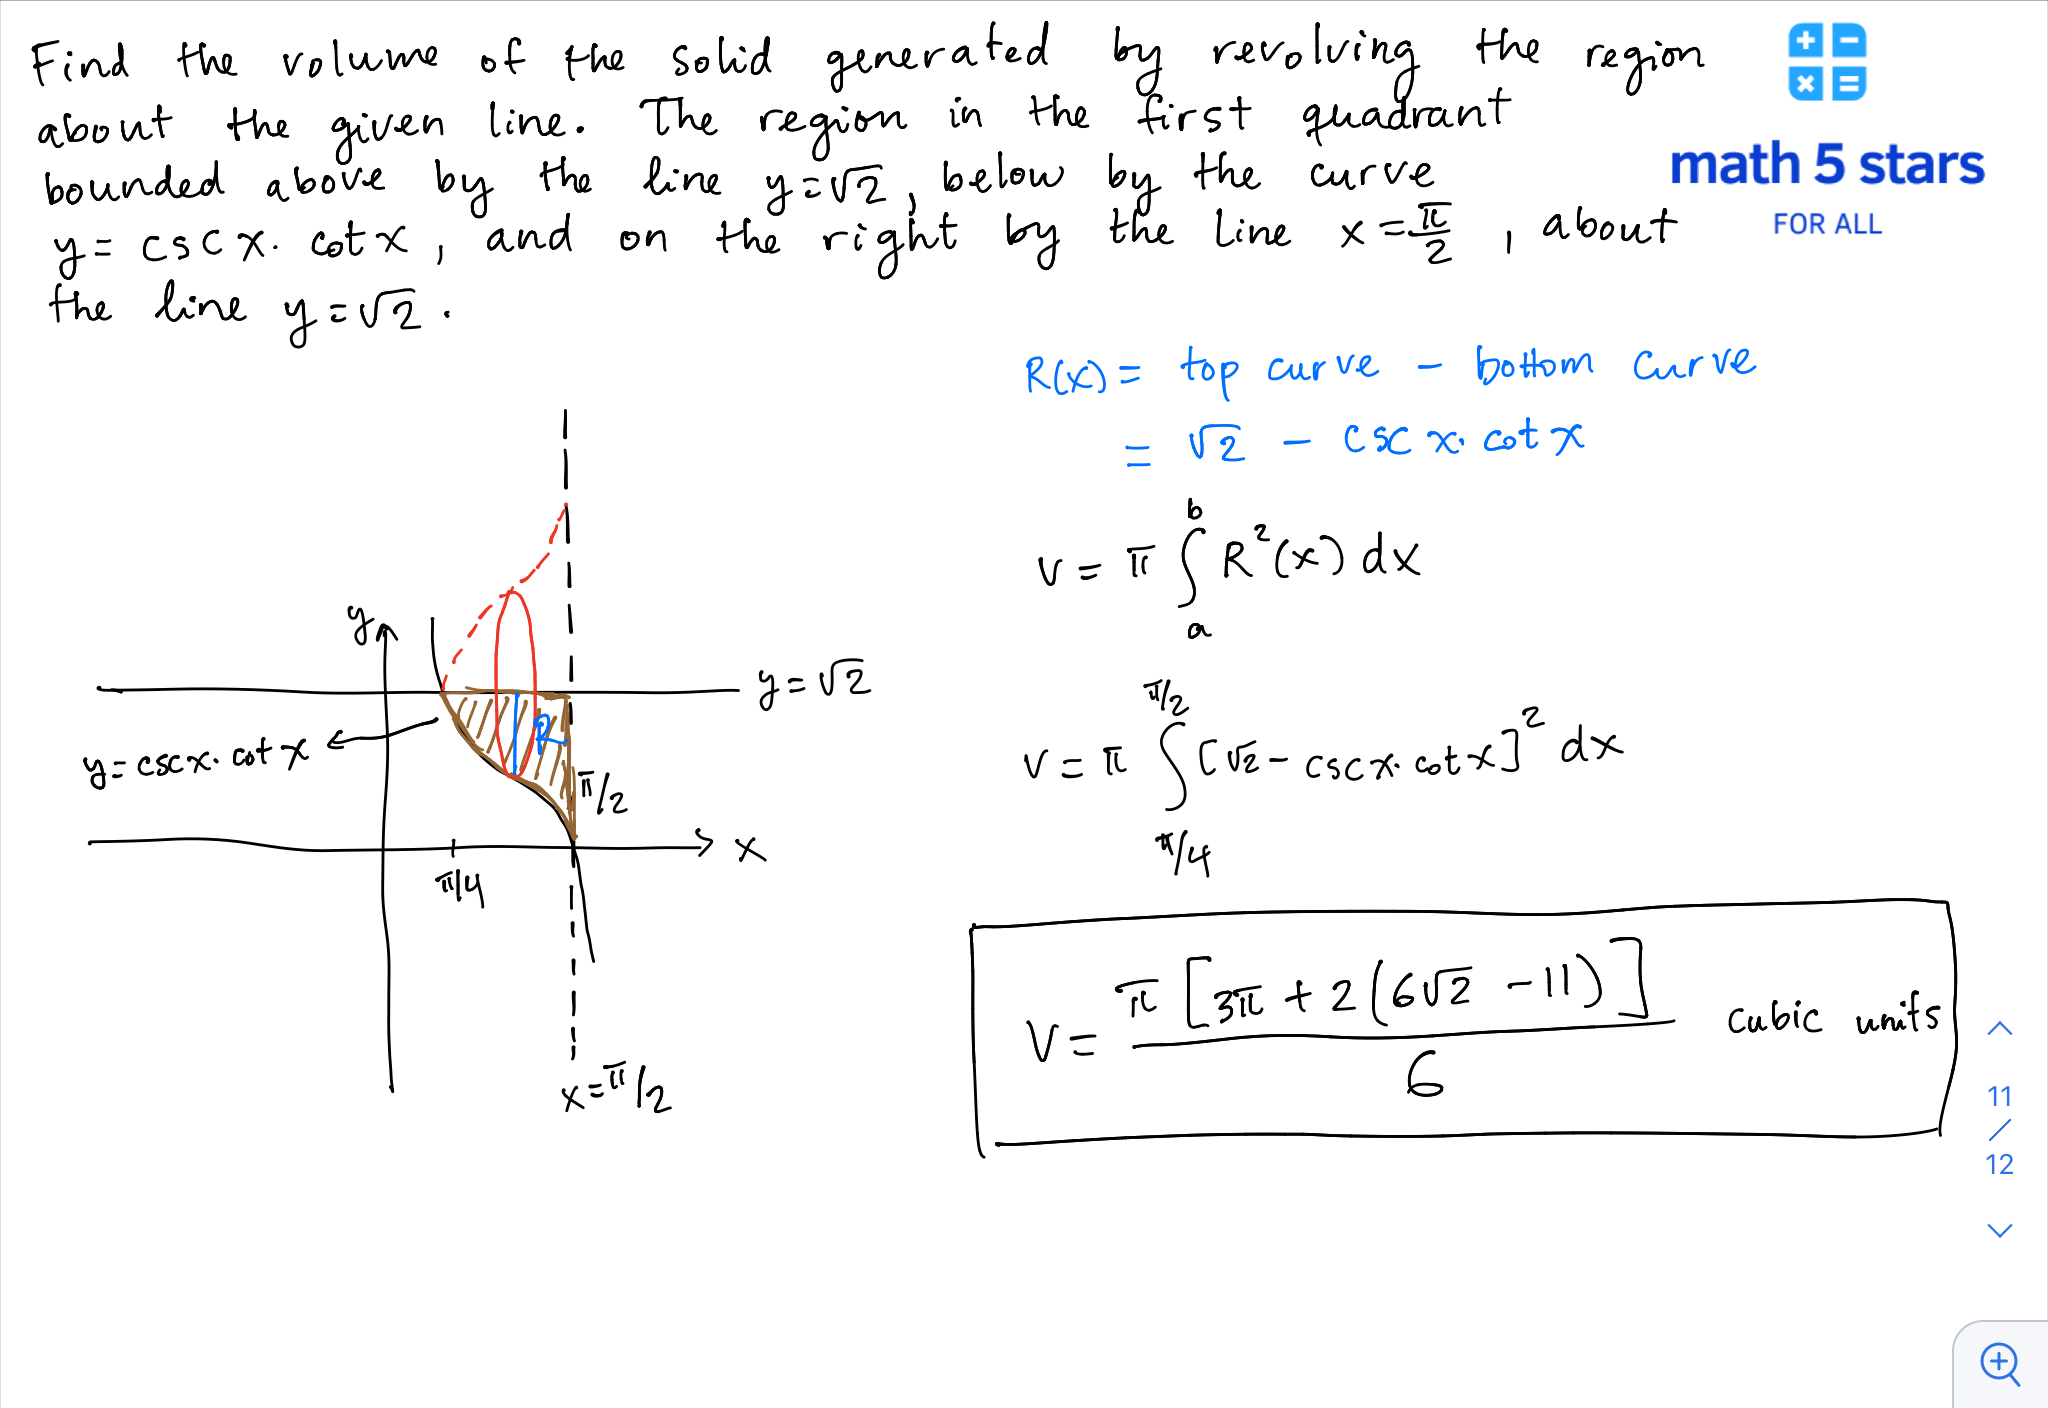 Find the volume of the solid generated by revolving the region
about the given line. The region in the first quadrant
bounded above by the line y=√2, below by the curve
y= csc x· cot x, and on the right by the line x=π/2, about
the line y=√2.
math 5 stars
FOR ALL
R(x)= top curve - bottom curve
= √2 - csc x· cot x
V= π ∫_a^b R²(x) dx
y
y=√2
y=cscx· cot x
R
π/2
x
π/4
x=π/2
V= π ∫_{π/4}^{π/2} [√2- cscx· cotx]² dx
V= π[3π+2(6√2-11)]/6 cubic units
11
/
12